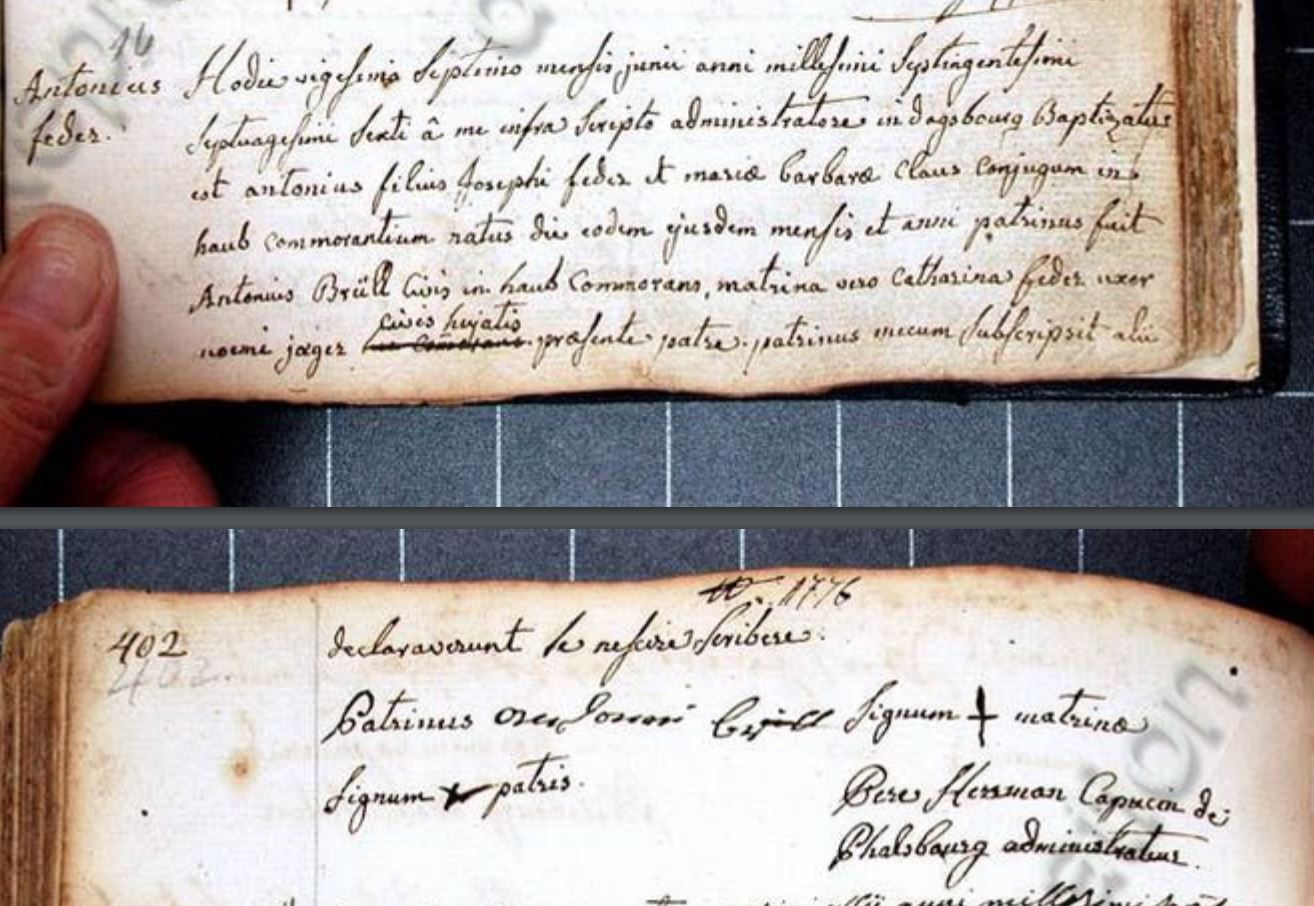 16
Antonius
feder.
Hodie vigesimo septimo mensis junii anni millesimi septingentesimi
septuagesimi sexti â me infra scripto administratore in dagsbourg Baptizatus
est antonius filius Josephi feder et mariæ barbaræ Claus conjugum in
haub commorantium natus die eodem ejusdem mensis et anni patrinus fuit
Antonius Brüll Civis in haub Commorans, matrina vero Catharina feder uxor
noemi jæger civis hujatis præsente patre. patrinus mecum subscripsit alii
1776
402
402.
declaraverunt se nescire scribere.
Patrinus brill signum + matrinæ
signum + patris.
Pere Herman Capucin de
Phalsbourg administrateur.
anni millesimi